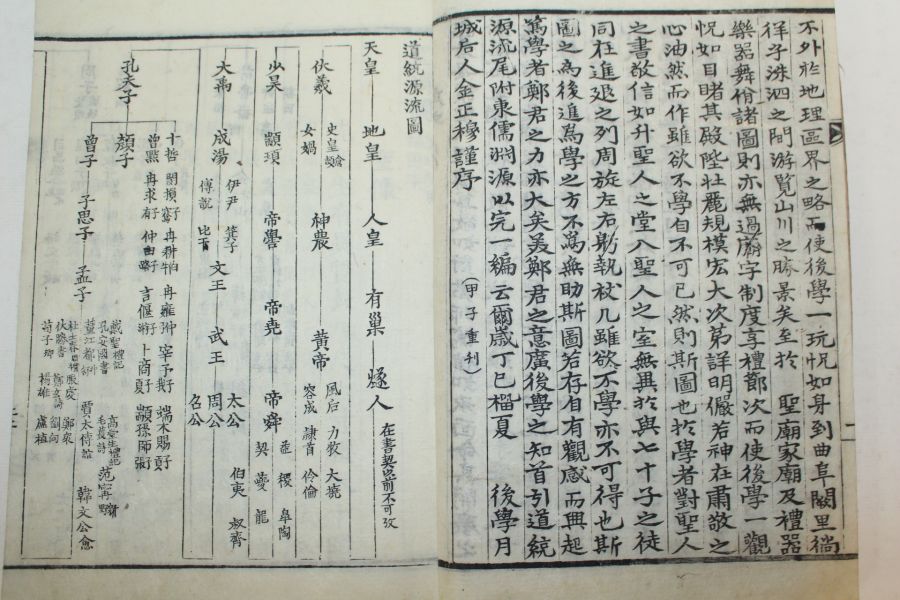 不外於地理區界之略而使後學一玩怳如身到曲阜闕里徜
徉乎洙泗之間游覽山川之勝景矣至於 聖廟家廟及禮器
樂器舞佾諸圖則亦無過廟宇制度享禮節次而使後學一觀
怳如目睹其殿陛壯麗規模宏大次第詳明儼若神在肅敬之
心油然而作雖欲不學自不可已然則斯圖也於學者對聖人
之書敬信如升聖人之堂入聖人之室無異於與七十子之徒
同在進退之列周旋左右躬執杖几雖欲不學亦不可得也斯
圖之爲後進爲學之方不爲無助斯圖若存自有觀感而興起
篤學者鄭君之力亦大矣美鄭君之意廣後學之知首引道統
源流尾附東儒淵源以完一編云爾歲丁巳榴夏 後學月
城后人金正穆謹序 (甲子重刊)
道統源流圖
天皇 地皇 人皇 有巢 燧人 在書契以前不可攷
伏羲 史皇倉頡 女媧 神農 黃帝 風后 力牧 大撓 容成 隷首 伶倫
少昊 顓頊 帝嚳 帝堯 帝舜 稷 皐陶 契 夔 龍
大禹 成湯 伊尹 箕子 傅說 比干 文王 武王 太公 周公 召公 伯夷 叔齊
孔夫子
十哲 閔損騫子 冉耕伯牛 冉雍仲弓 宰予我子 端木賜子貢
曾點 冉求子有 仲由子路 言偃子游 卜商子夏 顓孫師子張
顏子
曾子 子思子 孟子
戴聖禮記 高堂生禮記
孔安國書 毛萇詩 范甯
董江都仲舒 賈太傅誼 韓文公愈
杜子春周禮 鄭衆
伏勝書 劉向
荀子卿 楊雄 盧植